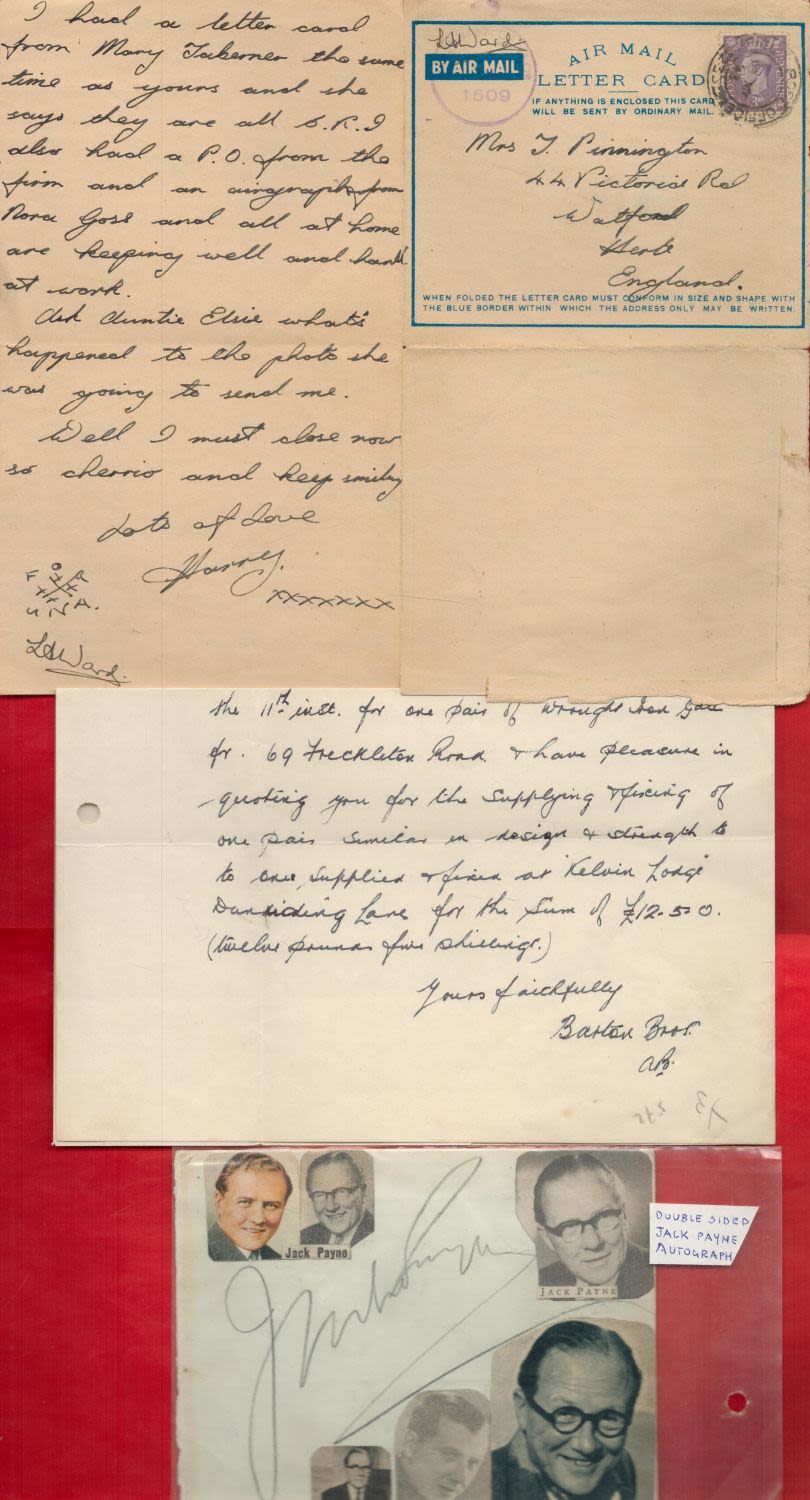 I had a letter card
from Mary Taberner the same
time as yours and she
says they are all O.K. I
also had a P.O. from the
firm and an airgraph from
Nora Goss and all at home
are keeping well and hard
at work.
Ask Auntie Elsie what's
happened to the photo she
was going to send me.
Well I must close now
so cherrio and keep smiling
Lots of Love
Harry.
xxxxxxx
LHWard.
LHWard.
BY AIR MAIL
1509
AIR MAIL
LETTER CARD
IF ANYTHING IS ENCLOSED THIS CARD
WILL BE SENT BY ORDINARY MAIL.
Mrs T. Pinnington
44 Victoria Rd
Watford
Herts
England.
WHEN FOLDED THE LETTER CARD MUST CONFORM IN SIZE AND SHAPE WITH
THE BLUE BORDER WITHIN WHICH THE ADDRESS ONLY MAY BE WRITTEN.
the 11th inst. for one pair of Wrought Iron Gates
fr. 69 Freckleton Road. & have pleasure in
quoting you for the supplying & fixing of
one pair similar in design & strength to
to ones supplied & fixed at 'Kelvin Lodge'
Lane for the Sum of £12-5-0.
(twelve pounds five shillings.)
Yours faithfully
Barton Bros.
AB.
Jack Payne
JACK PAYNE
Jack Payne
DOUBLE SIDED
JACK PAYNE
AUTOGRAPH